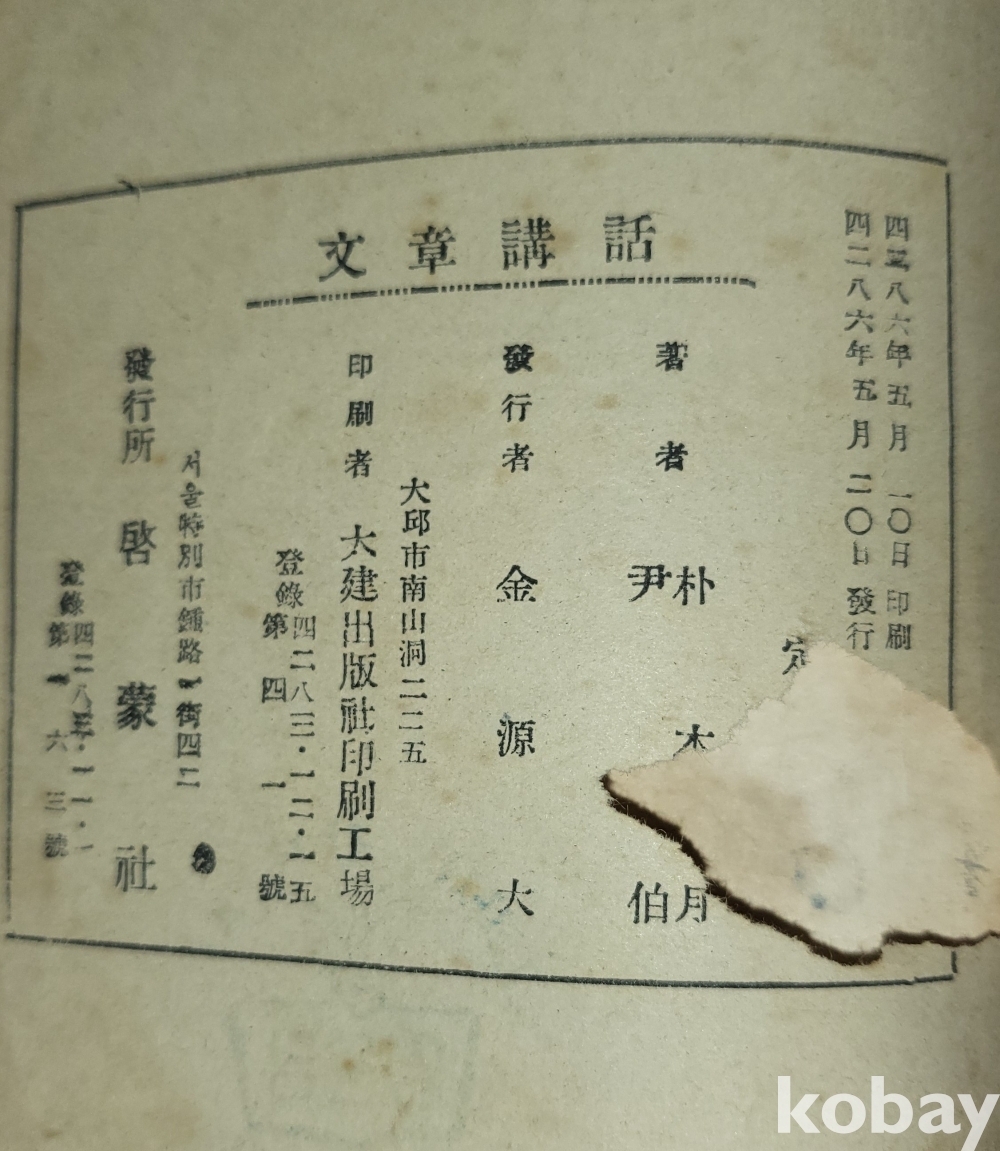 文章講話
四二八六年五月一〇日 印刷
四二八六年五月二〇日 發行
定
著者 朴木月
尹 伯
發行者 金源大
大邱市南山洞二二五
印刷者 大建出版社印刷工場
登錄四二八三·一二·一五
第四一號
서울特別市鍾路 街四二
發行所 啓蒙社
登錄四二八五·一一·一
第一六三號
kobay